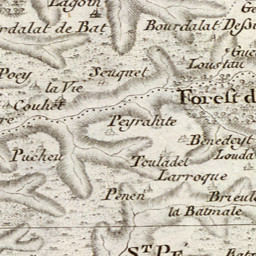 Lagoin
Bourdalat Dessu
rdalat de Bat
Gue
Loustau
Poey
Seuguet
la Vie
Couhet
Forest d
Peyrahite
Benedeyt
Louda
Pucheu
Teuladet
Larroque
Penen
Brieule
la Batmale
ST. PÉ
Bats